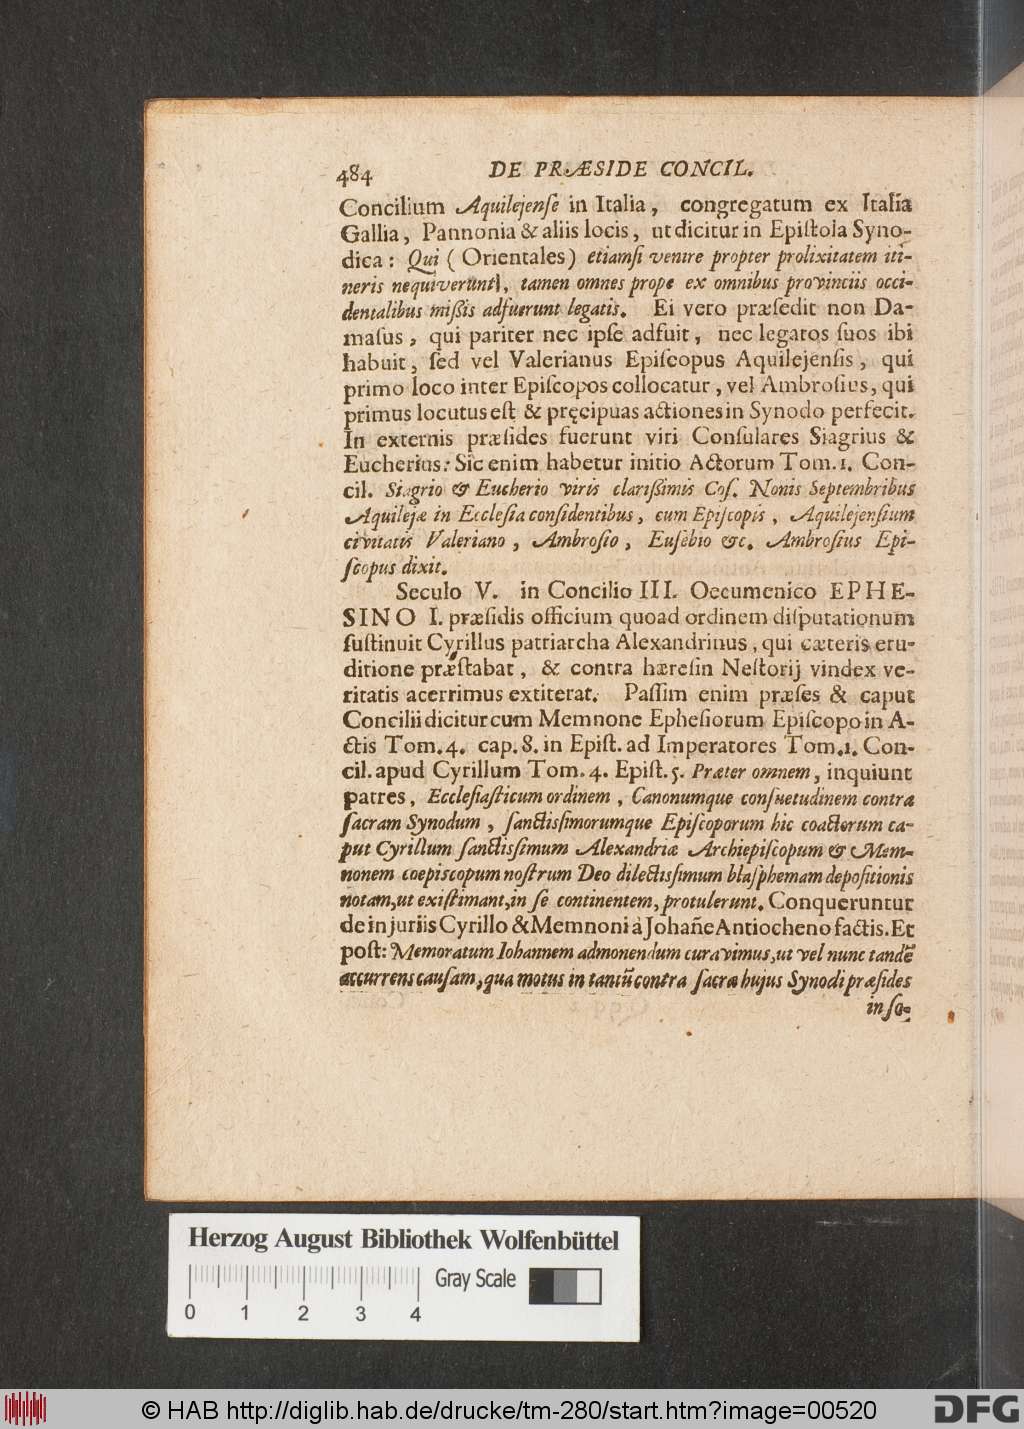 484 DE PRÆSIDE CONCIL.
Concilium Aquilejenſe in Italia, congregatum ex Italia
Gallia, Pannonia & aliis locis, ut dicitur in Epiſtola Syno-
dica: Qui (Orientales) etiamſi venire propter prolixitatem iti-
neris nequiverunt, tamen omnes prope ex omnibus provinciis occi-
dentalibus mißis adfuerunt legatis. Ei vero præſedit non Da-
maſus, qui pariter nec ipſe adfuit, nec legatos ſuos ibi
habuit, ſed vel Valerianus Epiſcopus Aquilejenſis, qui
primo loco inter Epiſcopos collocatur, vel Ambroſius, qui
primus locutus eſt & pręcipuas actiones in Synodo perfecit.
In externis præſides fuerunt viri Conſulares Siagrius &
Eucherius: Sic enim habetur initio Actorum Tom. 1. Con-
cil. Siagrio & Eucherio viris clarißimis Coſ. Nonis Septembribus
Aquilejæ in Eccleſia conſidentibus, cum Epiſcopis, Aquilejenſium
civitatis Valeriano, Ambroſio, Euſebio &c. Ambroſius Epi-
ſcopus dixit.
Seculo V. in Concilio III. Oecumenico EPHE-
SINO I. præſidis officium quoad ordinem diſputationum
ſuſtinuit Cyrillus patriarcha Alexandrinus, qui cæteris eru-
ditione præſtabat, & contra hæreſin Neſtorij vindex ve-
ritatis acerrimus extiterat. Paſſim enim præſes & caput
Concilii dicitur cum Memnone Epheſiorum Epiſcopo in A-
ctis Tom. 4. cap. 8. in Epiſt. ad Imperatores Tom. 1. Con-
cil. apud Cyrillum Tom. 4. Epiſt. 5. Præter omnem, inquiunt
patres, Eccleſiaſticum ordinem, Canonumque conſuetudinem contra
ſacram Synodum, ſanctiſſimorumque Epiſcoporum hic coactorum ca-
put Cyrillum ſanctiſſimum Alexandriæ Archiepiſcopum & Mem-
nonem coepiscopum noſtrum Deo dilectiſſimum blaſphemam depoſitionis
notam, ut exiſtimant, in ſe continentem, protulerunt. Conqueruntur
de injuriis Cyrillo & Memnoni à Johañe Antiocheno factis. Et
poſt: Memoratum Iohannem admonendum curavimus, ut vel nunc tandē
accurrens cauſam, qua motus in tantū contra ſacræ hujus Synodi præſides
in ſo-
Herzog August Bibliothek Wolfenbüttel
Gray Scale
0 1 2 3 4
© HAB http://diglib.hab.de/drucke/tm-280/start.htm?image=00520
DFG